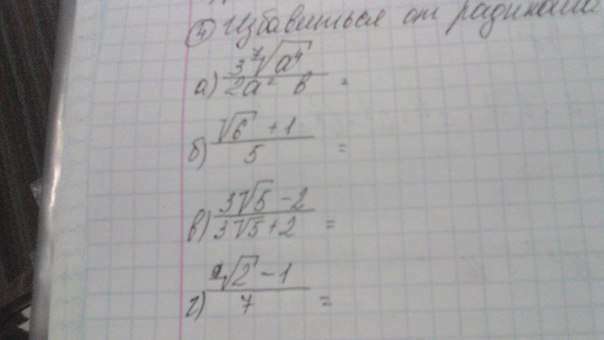 ④ Избавиться от радикала
а) 3 ⁷√a⁴ / 2a² b =
б) √6 + 1 / 5 =
в) 3√5 - 2 / 3√5 + 2 =
г) √2 - 1 / 7 =